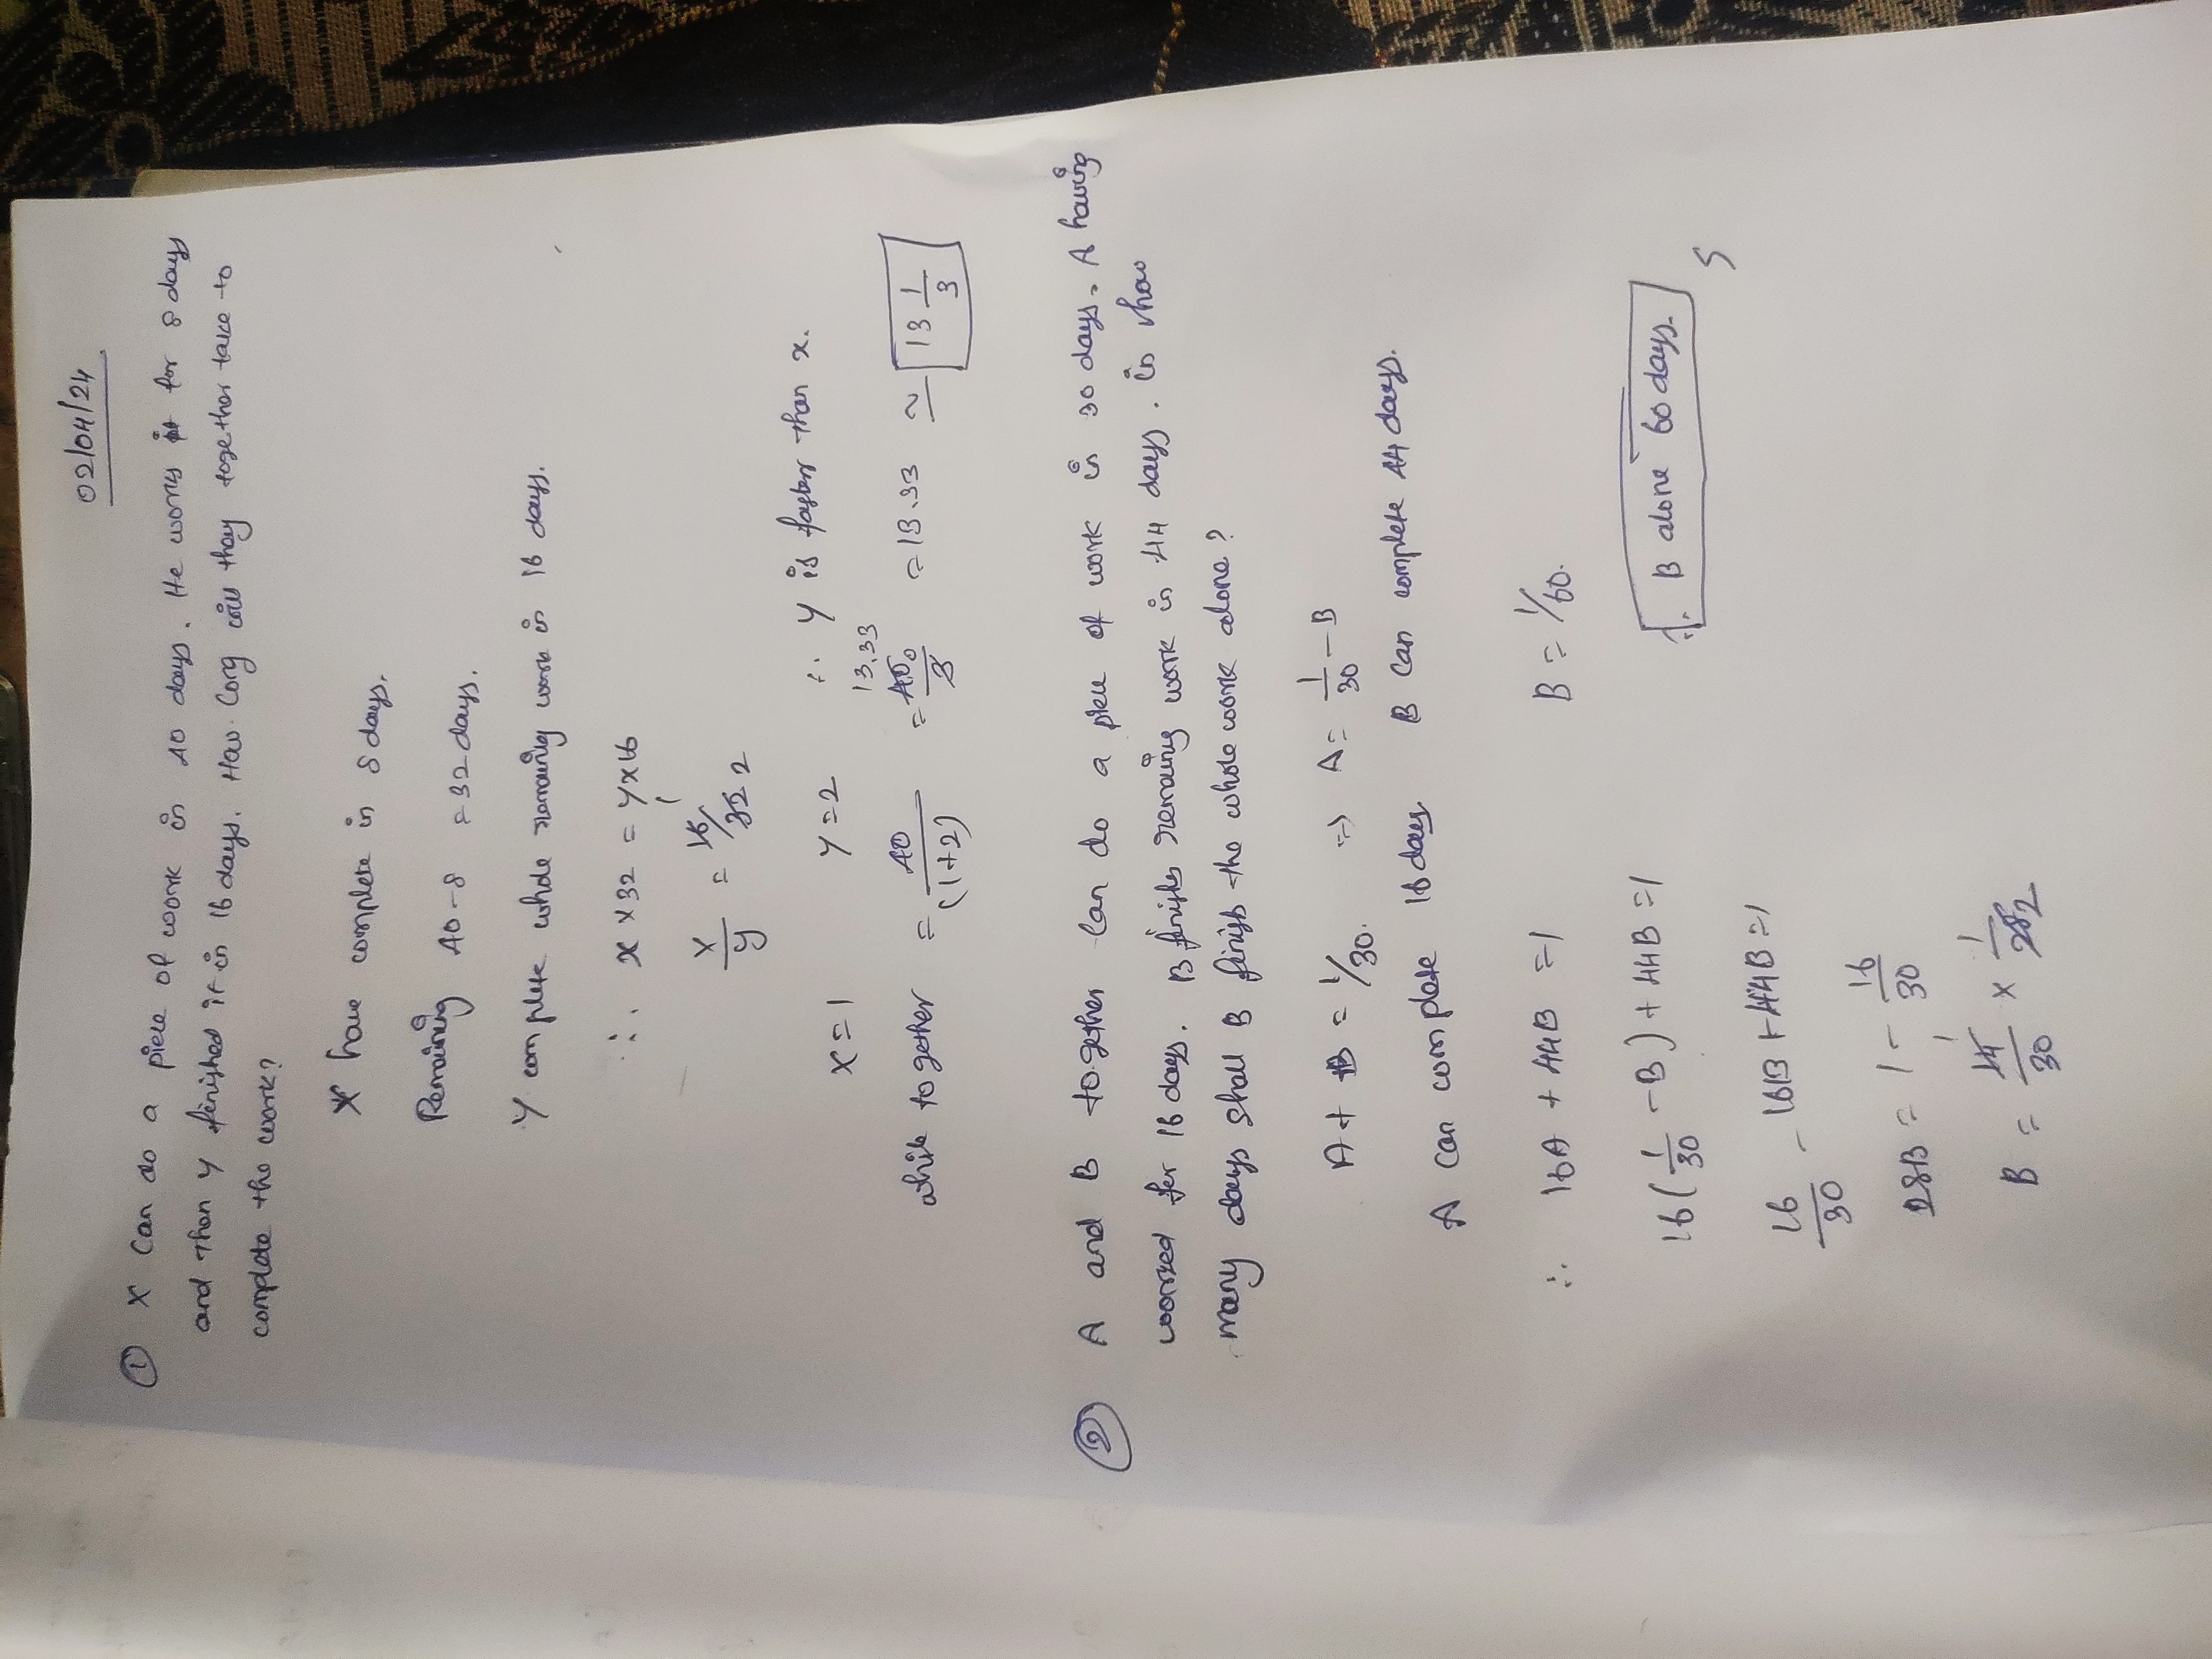 02/04/24
① X Can do a piece of work in 40 days. He works for 8 days
and then y finished it in 16 days. How long will they together take to
complete the work?
X have complete in 8 days.
Remaining 40-8 = 32 days.
Y complete whole remaining work in 16 days.
∴ x × 32 = y × 16
x/y = 16/32 1 2
x = 1 y = 2 ∴ y is faster than x.
13.33
while together = 40/(1+2) = 40/3 = 13.33 ≃ 13 1/3
② A and B together can do a piece of work in 30 days. A having
worked for 16 days. B finishes remaining work in 44 days. in how
many days shall B finish the whole work alone?
A + B = 1/30. => A = 1/30 - B
A can complete 16 days B can complete 44 days.
∴ 16A + 44B = 1 B = 1/60.
16(1/30 - B) + 44B = 1 ∴ B alone 60 days.
16/30 - 16B + 44B = 1
28B = 1 - 16/30
B = 14/30 × 1/28 1 2